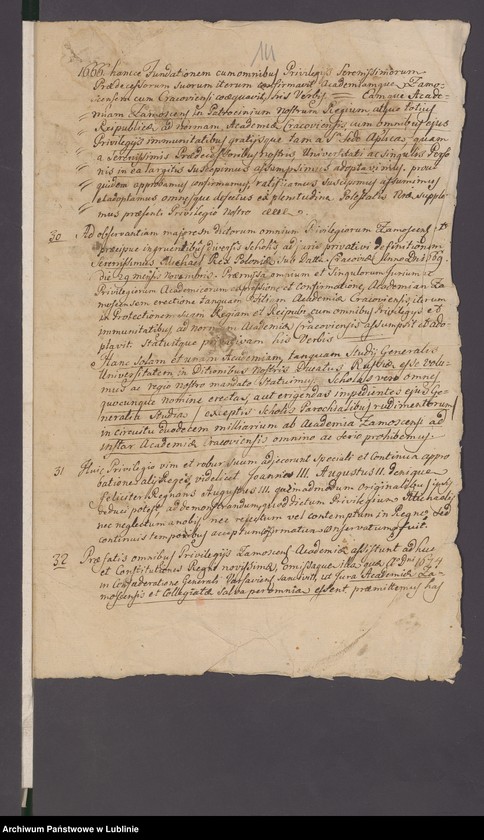 1666. hancce Fundationem cum omnibus Privilegijs Serenissimorum
Prædecessorum suorum iterum confirmavit Academiamque Zamo-
scensem cum Cracoviensi coæquavit, his Verbis Eamque Acade-
miam Zamoscens in Patrocinium nostrum Regium atque totius
Reipublicæ ad normam Academiæ Cracoviensis, cum omnibus ejus
Privilegijs immunitatibus gratijsque tam a Sede Aplica, quam
a Serenissimis Prædecessoribus nostris Universitati ac singulis Perso-
nis in ea largitis suscipimus assumpsimus adoptavimus, prout
quidem approbamus confirmamus, ratificamus suscipimus assumimus
et adoptamus omnesque defectus ex plenitudine Potestatis Nræ supple-
mus præsenti Privilegio nostro
30 Ad observantiam majorem dictorum omnium Privilegiorum Zamoscens et
præcipue ingruentibus diversis Scholis ad jaris privatim definitionem
Serenissimus Michael Rex Poloniæ sub Datta Cracoviæ Anno Dni 1669.
die 29 mensis Novembris. Præmissa omnium et Singulorum Jurium ac
Privilegiorum Academicorum expressione et confirmatione, Academian Za-
moscensem erectione tanquam Academiæ Cracoviensis iterum
in Protectionem suam Regiam et Reipubs cum omnibus Privilegijs et
immunitatibus ad normam Academiæ Cracoviensis assumpsit et ado-
ptavit Statuitque his Verbis
Hanc solam et unam Academiam tanquam Studij Generalis
Universitatem in Ditionibus Nostris Ducatus Russiæ esse volu-
mus ac regio nostro mandato Statuimus, Scholas vero omnes
quocunque nomine erectas, aut erigendas impedientes ejus Ge-
neralia Studia / exceptis Scholis Parochialibus rudimentorum /
in circuitu duodecem milliarium ab Academia Zamoscensi ad
instar Academiæ Cracoviensis omnino ac serio prohibemus.
31 Huic Privilegio vim et robur suum adjecerunt Speciali et Continua appro
batione alij Reges, videlicet Joannes III. Augustus II. denique
feliciter Regnans Augustus III. quemadmodum originalibus ipsis
induci potest ad demonstrandum, quod dictum Privilegium Michaelis
nec neglectum a nobis, nec rejectum vel contemptum in Regno, sed
continuis temporibus acceptum confirmatum conservatum fuit.
32 Præfatis omnibus Privilegijs Zamoscens Academiæ assistunt adhuc
et Constitutiones Regni novissimæ, omissaque illa quæ Ao Dni 1674
in Confæderatione Generali Varsaviens sancivit, ut Jura Academiæ Za-
moscensis et Collegiatæ salva per omnia essent, præmittemus has
Archiwum Państwowe w Lublinie